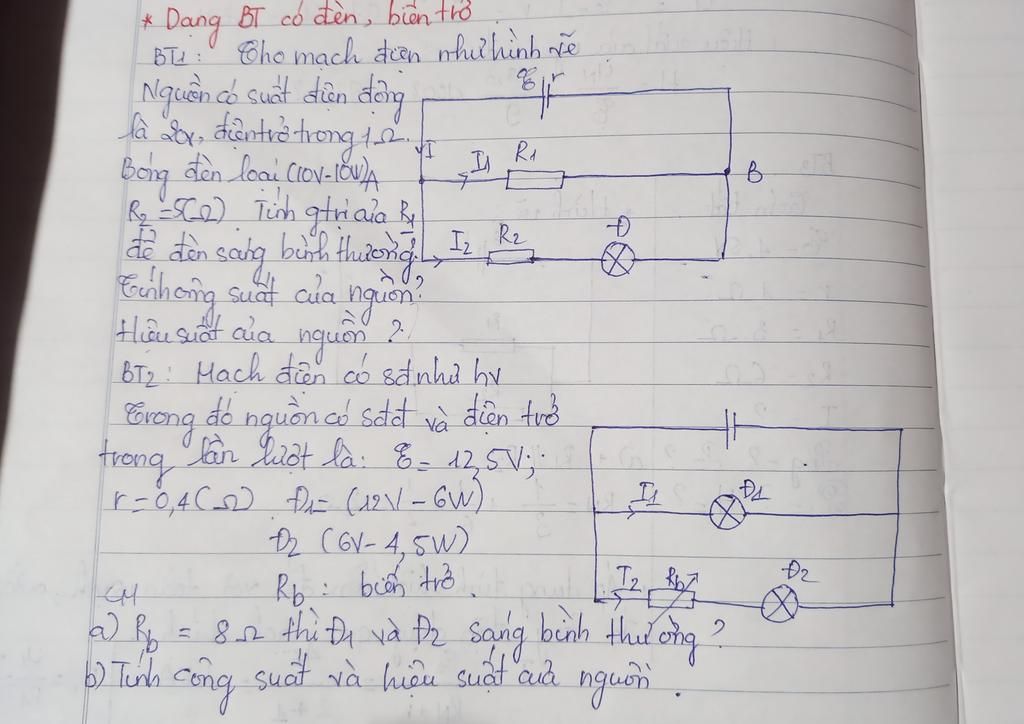 * Dạng BT có đèn, biến trở
BT1: Cho mạch điện như hình vẽ
Nguồn có suất điện động
là 20V, điện trở trong 1Ω.
Bóng đèn loại (10V-10W)
R2 = 5(Ω) Tính gtrị của R1
để đèn sáng bình thường?
Tính công suất của nguồn?
Hiệu suất của nguồn?
E r
I
A
I1 R1
B
I2 R2 Đ
BT2: Mạch điện có sđ như hv
Trong đó nguồn có sđđ và điện trở
trong lần lượt là: E = 12,5V;
r = 0,4(Ω) Đ1 = (12V - 6W)
Đ2 (6V - 4,5W)
CM Rb: biến trở.
I1 Đ1
I2 Rb Đ2
a) Rb = 8Ω thì Đ1 và Đ2 sáng bình thường?
b) Tính công suất và hiệu suất của nguồn.